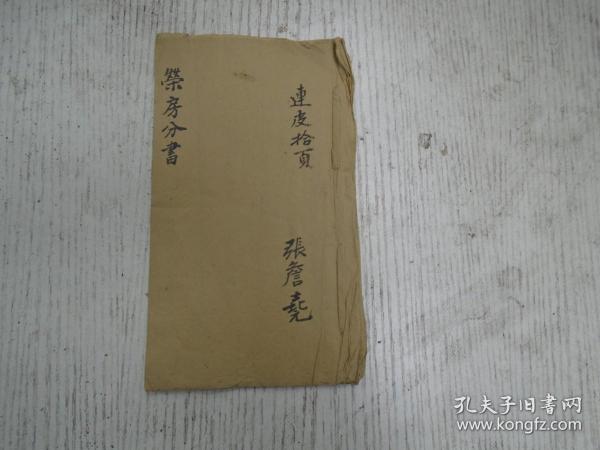 連皮拾頁
張詹堯
榮房分書
孔夫子旧書网
www.kongfz.com